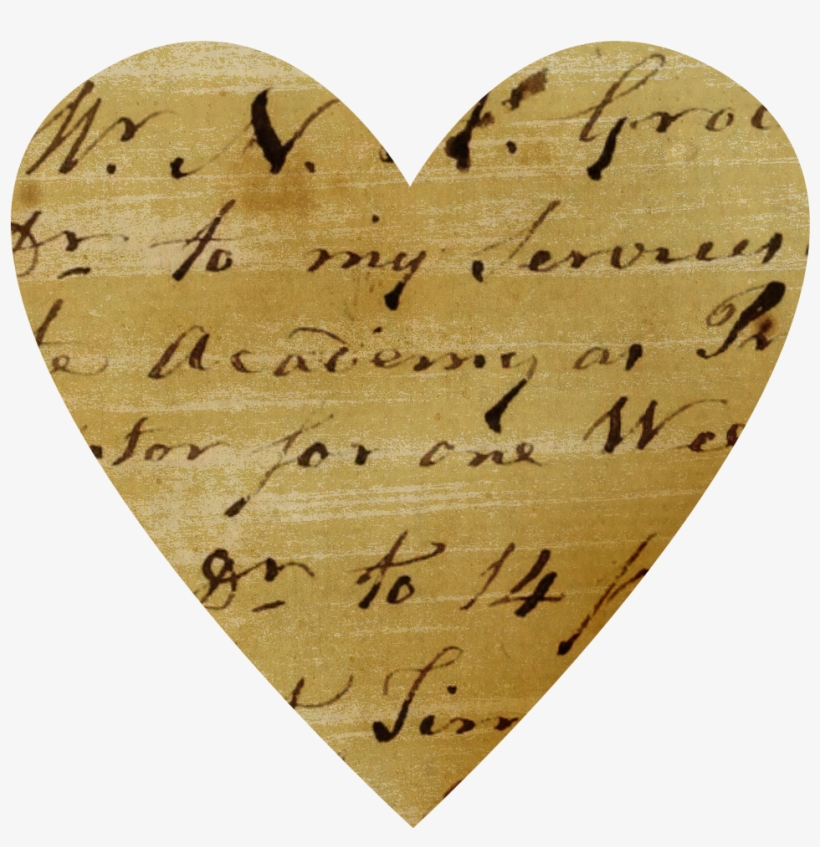 Mr. N. Groc
Dr to my Services
te Academy as Pr
ptor for one Wee
Dr to 14
Tim